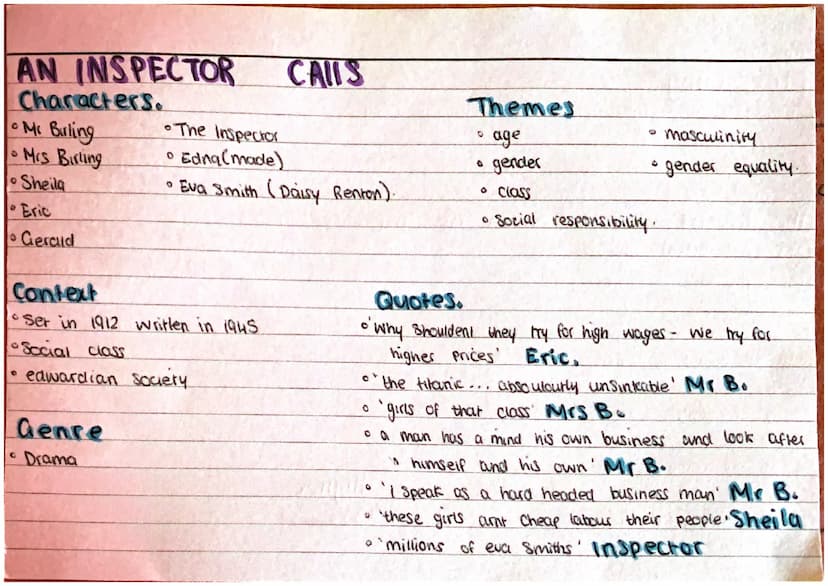 AN INSPECTOR CAllS
Characters.
° Mr Birling
° Mrs Birling
° Sheila
° Eric
° Gerald
° The Inspector
° Edna (made)
° Eva Smith (Daisy Renton).
Themes
° age
° gender
° class
° Social responsibility.
° masculinity
° gender equality.
Context
° Set in 1912 written in 1945
° Social class
° edwardian society
Genre
° Drama
Quotes.
° 'Why shouldent they try for high wages - we try for
highes prices' Eric.
° 'the titanic... absoulourly unsinkable' Mr B.
° 'girls of that class' Mrs B.
° a man has a mind his own business and look after
'' himself and his own' Mr B.
° 'I speak as a hard headed business man' Mr B.
° 'these girls arnt cheap labour their people' Sheila
° 'millions of eva smiths' Inspector